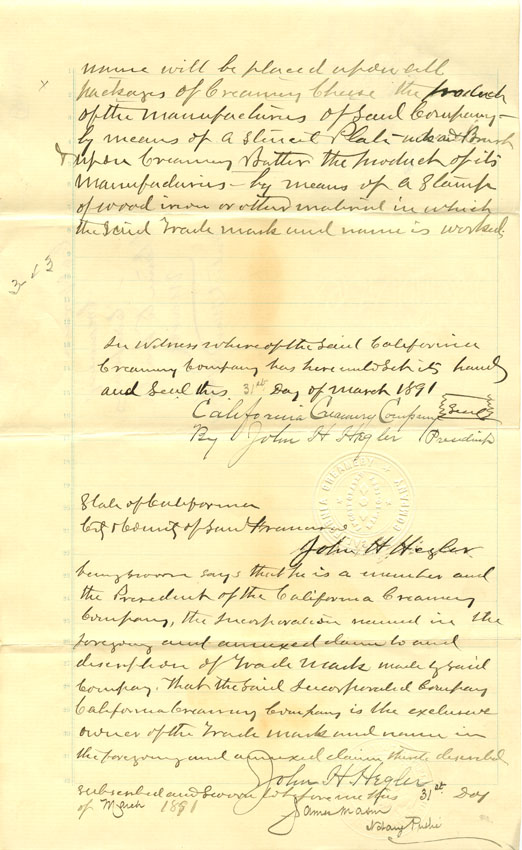 name will be placed upon all
x packages of Creamery Cheese the product
of the manufactures of Said Company -
by means of a Stencil Plate and Brush
upon Creamery Butter the product of its
manufactures - by means of a Stamp
of wood iron or other material in which
the Said Trade mark and name is worked.
3 & 3
In Witness where of the Said California
Creamery Company has here unto Set its hand
and Seal this 31st Day of March 1891
California Creamery Company Seal
By John H Hegler President
State of California
City & County of San Francisco
John H Hegler
being sworn says that he is a member and
the President of the California Creamery
Company, the Incorporation named in the
foregoing and annexed claim to and
description of Trade Mark made by Said
Company. That the Said Incorporated Company
California Creamery Company is the exclusive
owner of the Trade mark and name in
the foregoing and annexed claim described
John H Hegler
Subscribed and Sworn to before me this 31st Day
of March 1891
James Mason
Notary Public